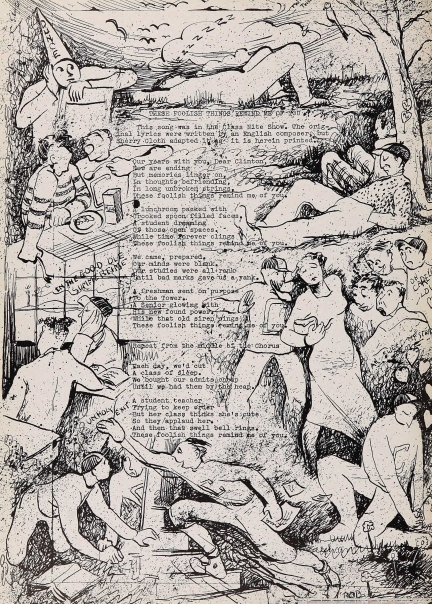 THESE FOOLISH THINGS REMIND ME OF YOU
This song was in the Class Nite Show. The orig-
inal lyrics were written by an English composer, but
Sherry Cloth adapted it as it is herein printed.
Our years with you, Dear Clinton
Now are ending
But memories linger on,
In thoughts befriending,
In long unbroken strings,
These foolish things remind me of you.
A lunchroom packed with
Crooked spoon filled faces,
A student dreaming
Of those open spaces.
While time forever clings
These foolish things remind me of you.
We came, prepared,
Our minds were blank.
Our studies were all rank
Until bad marks gave us a yank.
A Freshman sent on purpose
To the Tower.
A Senior glowing with
His new found power.
While that old siren sings
These foolish things remind me of you.
Repeat from the middle of the Chorus
Each day, we'd cut
A class of sleep.
We bought our admits cheap
Until we had them by the heap.
A student teacher
Trying to keep order
But her class thinks she's cute
So they applaud her.
And then that swell bell rings.
These foolish things remind me of you.